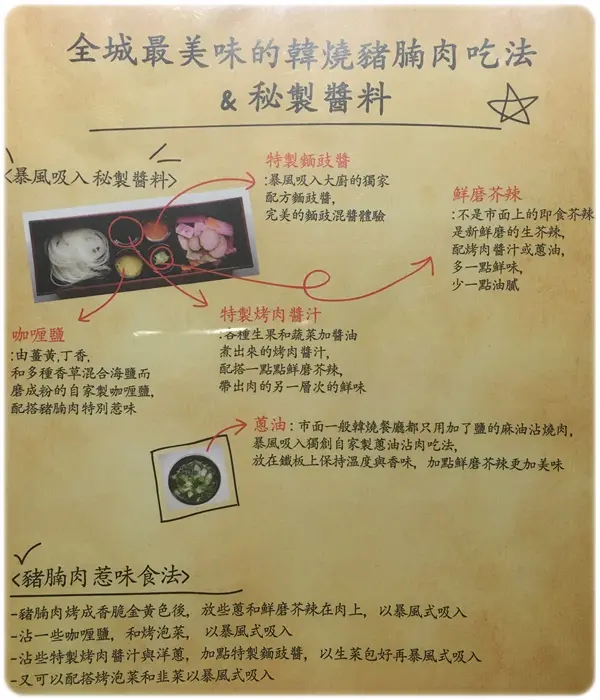 全城最美味的韓燒豬腩肉吃法
& 秘製醬料
<暴風吸入秘製醬料>
特製麵豉醬
:暴風吸入大廚的獨家
配方麵豉醬,
完美的麵豉混醬體驗
鮮磨芥辣
:不是市面上的即食芥辣
是新鮮磨的生芥辣,
配烤肉醬汁或蔥油,
多一點鮮味,
少一點油膩
咖喱鹽
:由薑黃,丁香,
和多種香草混合海鹽而
磨成粉的自家製咖喱鹽,
配搭豬腩肉特別惹味
特製烤肉醬汁
:各種生果和蔬菜加醬油
煮出來的烤肉醬汁,
配搭一點點鮮磨芥辣,
帶出肉的另一層次的鮮味
蔥油:市面一般韓燒餐廳都只用加了鹽的麻油沾燒肉,
暴風吸入獨創自家製蔥油沾肉吃法,
放在鐵板上保持溫度與香味, 加點鮮磨芥辣更加美味
<豬腩肉惹味食法>
-豬腩肉烤成香脆金黃色後, 放些蔥和鮮磨芥辣在肉上, 以暴風式吸入
-沾一些咖喱鹽, 和烤泡菜, 以暴風式吸入
-沾些特製烤肉醬汁與洋蔥, 加點特製麵豉醬, 以生菜包好再暴風式吸入
-又可以配搭烤泡菜和韭菜以暴風式吸入